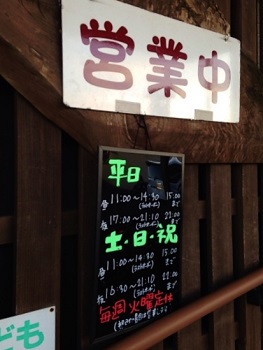 営業中
平日
昼 11:00〜14:30 15:00まで
夜 17:00〜21:10 22:00まで
土・日・祝
昼 11:00〜14:30 15:00まで
夜 16:30〜21:10 22:00まで
毎週火曜定休
ども